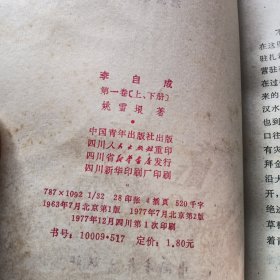 李自成
第一卷(上、下册)
姚雪垠著
中国青年出版社出版
四川人民出版社重印
四川省新华书店发行
四川新华印刷厂印刷
787×1092 1/32 28印张 4插页 520千字
1963年7月北京第1版 1977年7月北京第2版
1977年12月四川第1次印刷
书号:10009·517 定价:1.80元
在这
驻扎
营驻
在过
来的
汉水
口有
有灾
拜金
沿大
开,
绝迹
草
着